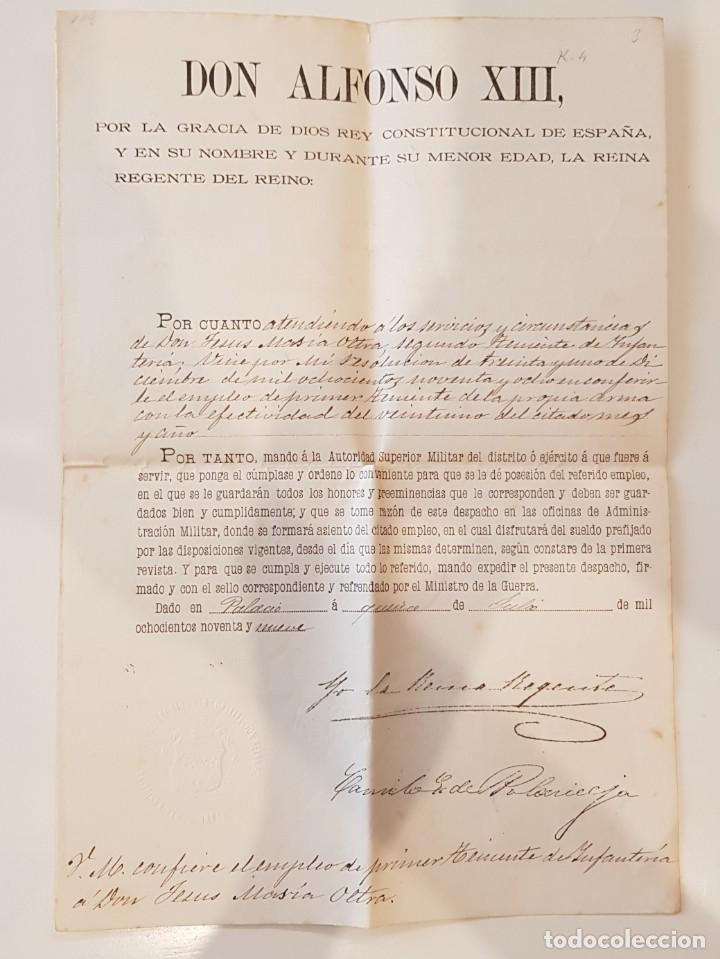 3
K-4
DON ALFONSO XIII,
POR LA GRACIA DE DIOS REY CONSTITUCIONAL DE ESPAÑA,
Y EN SU NOMBRE Y DURANTE SU MENOR EDAD, LA REINA
REGENTE DEL REINO:
POR CUANTO atendiendo á los servicios y circunstancias
de Don Jesus Maria Oltra, segundo Teniente de Infan-
tería, Vine por Mi resolucion de treinta y uno de Di
ciembre de mil ochocientos noventa y ocho en conferir-
le el empleo de primer Teniente de la propia arma
con la efectividad del veintiuno del citado mes
y año
POR TANTO, mando á la Autoridad Superior Militar del distrito ó ejército á que fuere á
servir, que ponga el cúmplase y ordene lo conveniente para que se le dé posesión del referido empleo,
en el que se le guardarán todos los honores y preeminencias que le corresponden y deben ser guar-
dados bien y cumplidamente; y que se tome razón de este despacho en las oficinas de Adminis-
tración Militar, donde se formará asiento del citado empleo, en el cual disfrutará del sueldo prefijado
por las disposiciones vigentes, desde el día que las mismas determinen, según constare de la primera
revista. Y para que se cumpla y ejecute todo lo referido, mando expedir el presente despacho, fir-
mado y con el sello correspondiente y refrendado por el Ministro de la Guerra.
Dado en Palacio á quince de Julio de mil
ochocientos noventa y nueve
Yo la Reina Regente
Camilo G. de Polavieja
V. M. confiere el empleo de primer Teniente de Infantería
á Don Jesus Maria Oltra.
todocoleccion.net